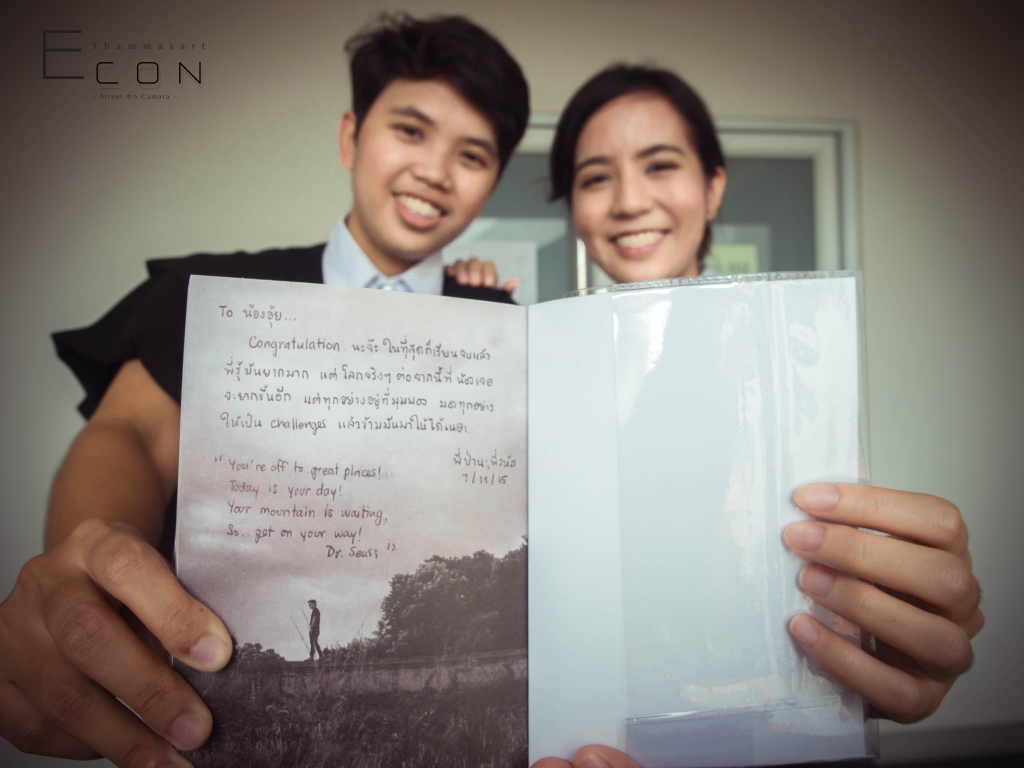 E Thammasart
CON
- Street On Camara -
To น้องอุ้ย...
Congratulation นะจ๊ะ ในที่สุดก็เรียนจบแล้ว
พี่รู้มันยากมาก แต่โลกจริงๆ ต่อจากนี้ที่น้องเจอ
จะยากขึ้นอีก แต่ทุกอย่างอยู่ที่มุมมอง มองทุกอย่าง
ให้เป็น challenges แล้วข้ามมันมาให้ได้นะ
7/11/15
"You're off to great places!
Today is your day!
Your mountain is waiting,
So... get on your way!
Dr. Seuss"